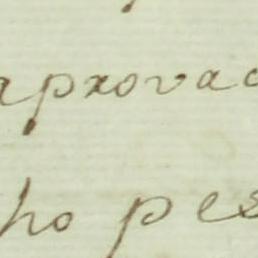 aprovac
ho pes